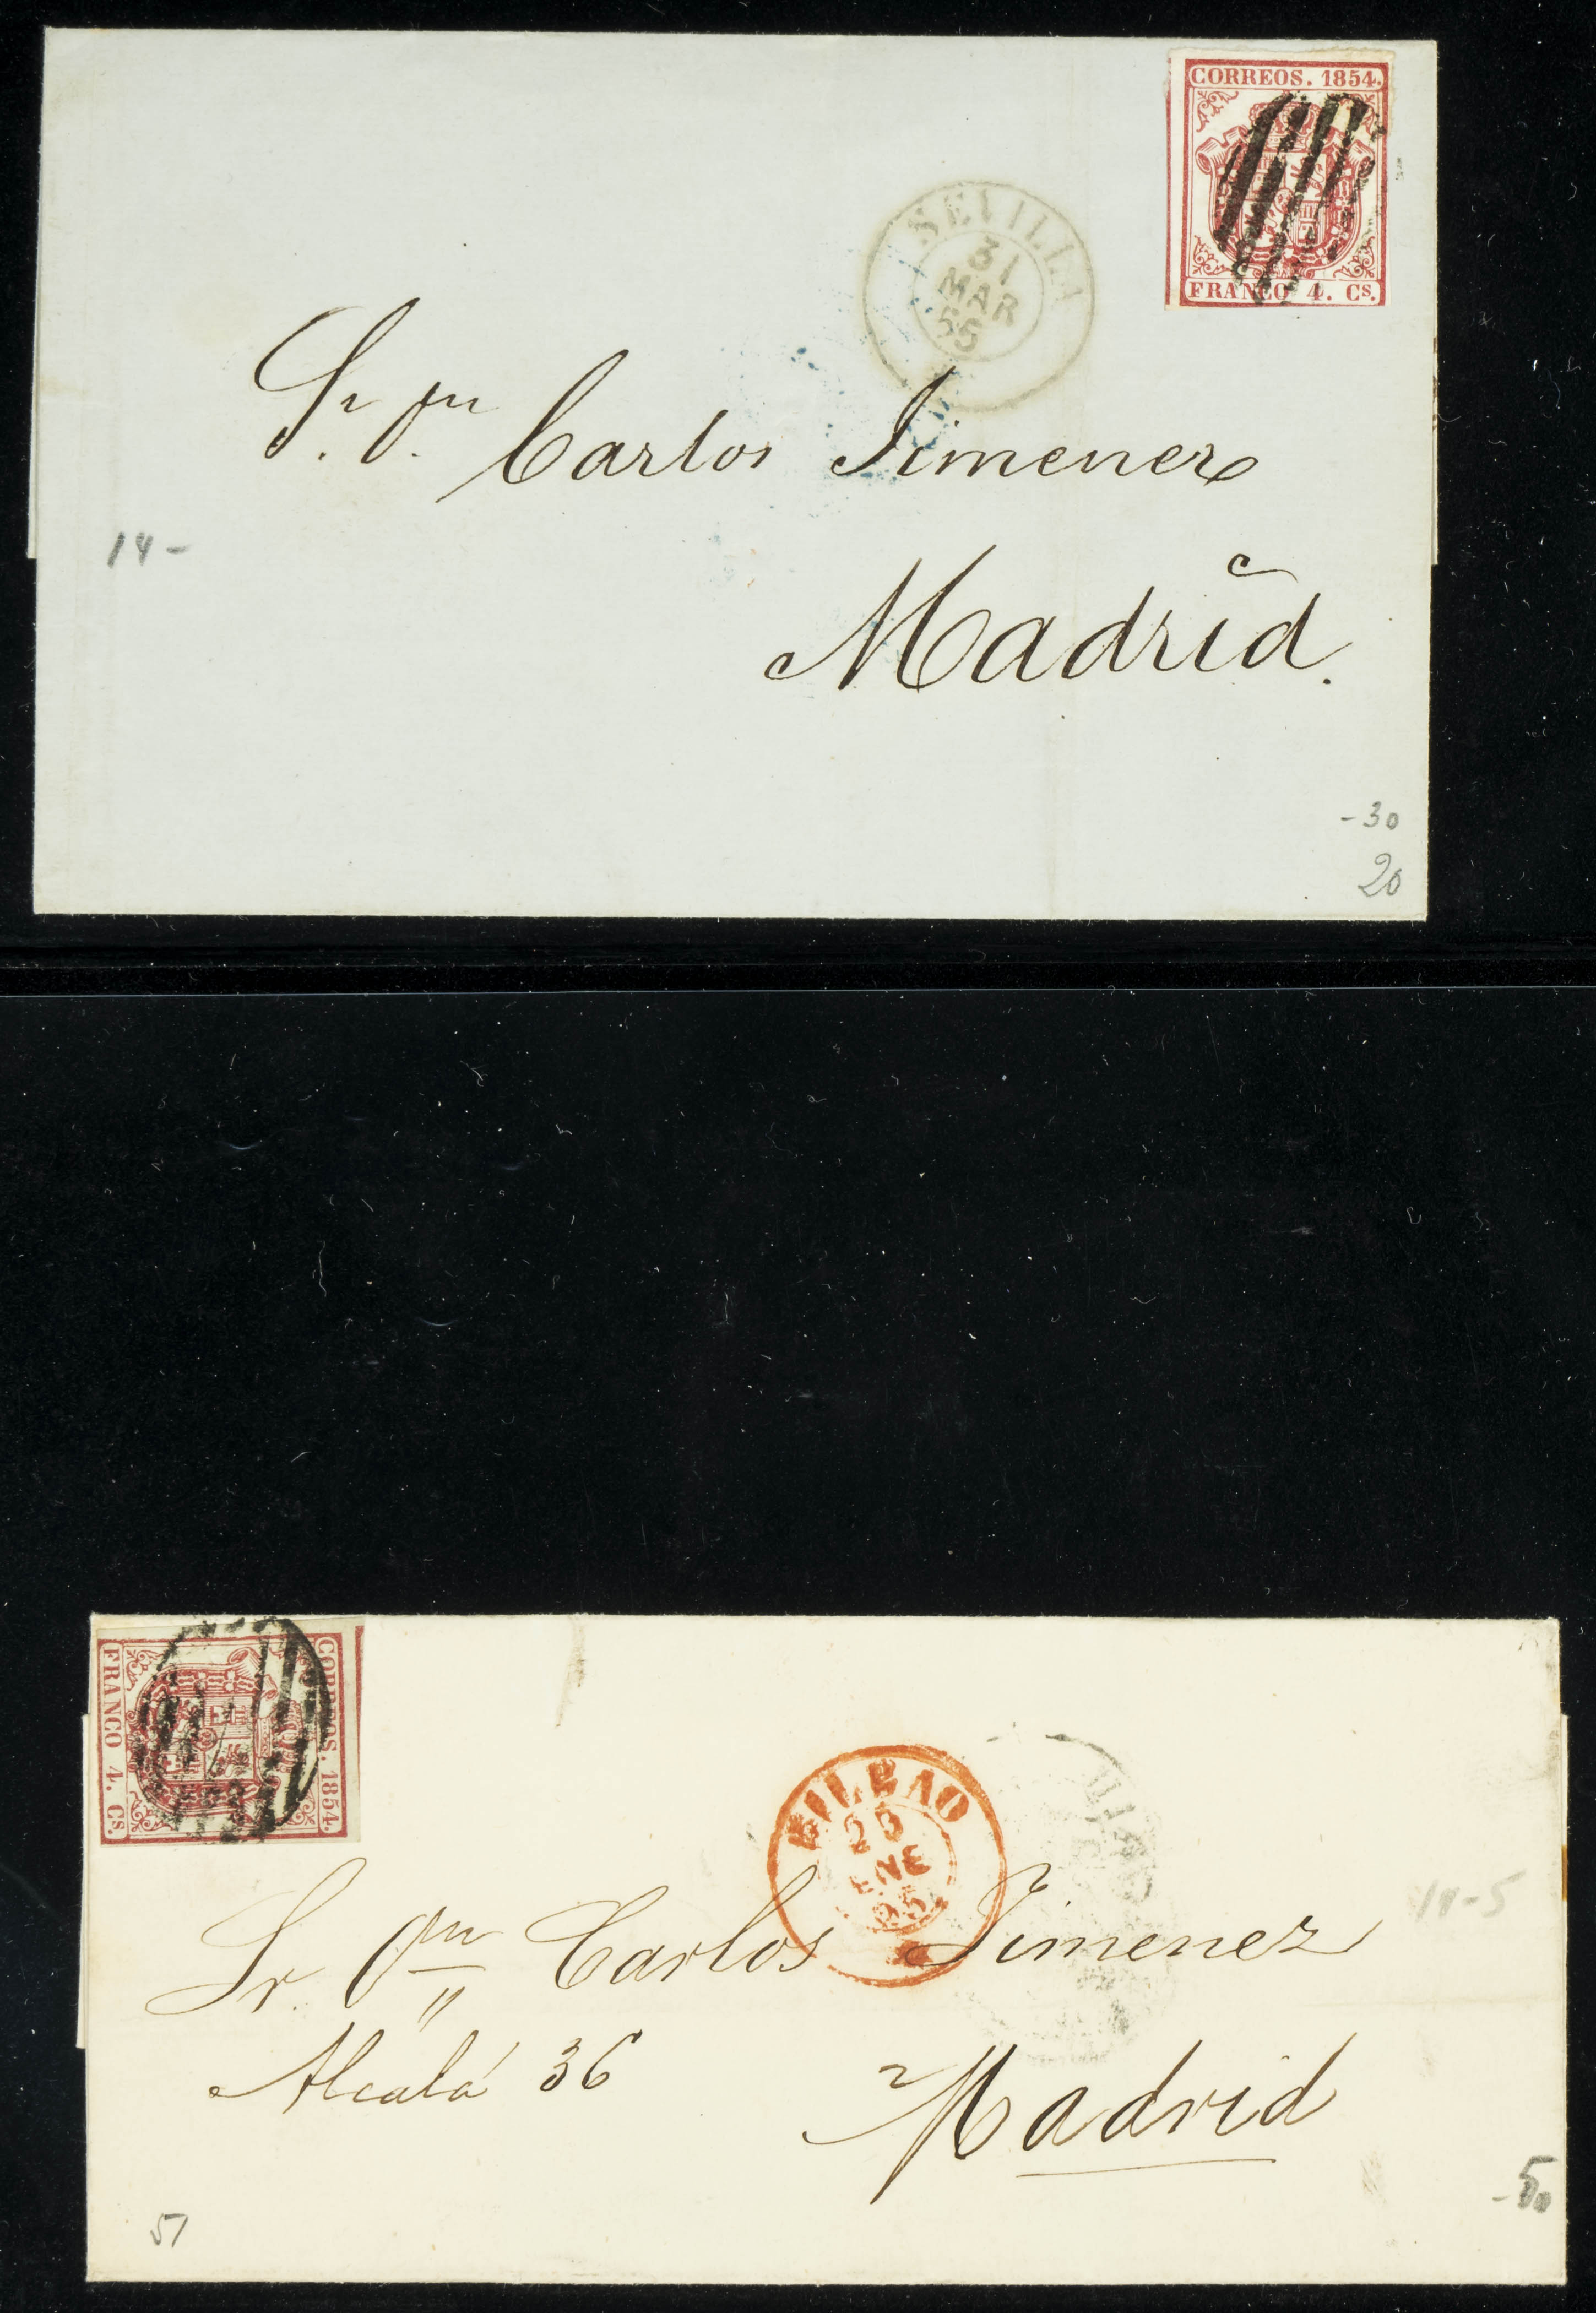 CORREOS. 1854.
FRANCO 4. Cs.
SEVILLA
31
MAR
55
Sr. Dn. Carlos Jimenez
14-
Madrid.
-30
20
CORREOS. 1854.
FRANCO 4. Cs.
BILBAO
23
ENE
55
14-5
Sr. Dn Carlos Jimenez
Alcalá 36
Madrid
-50
51